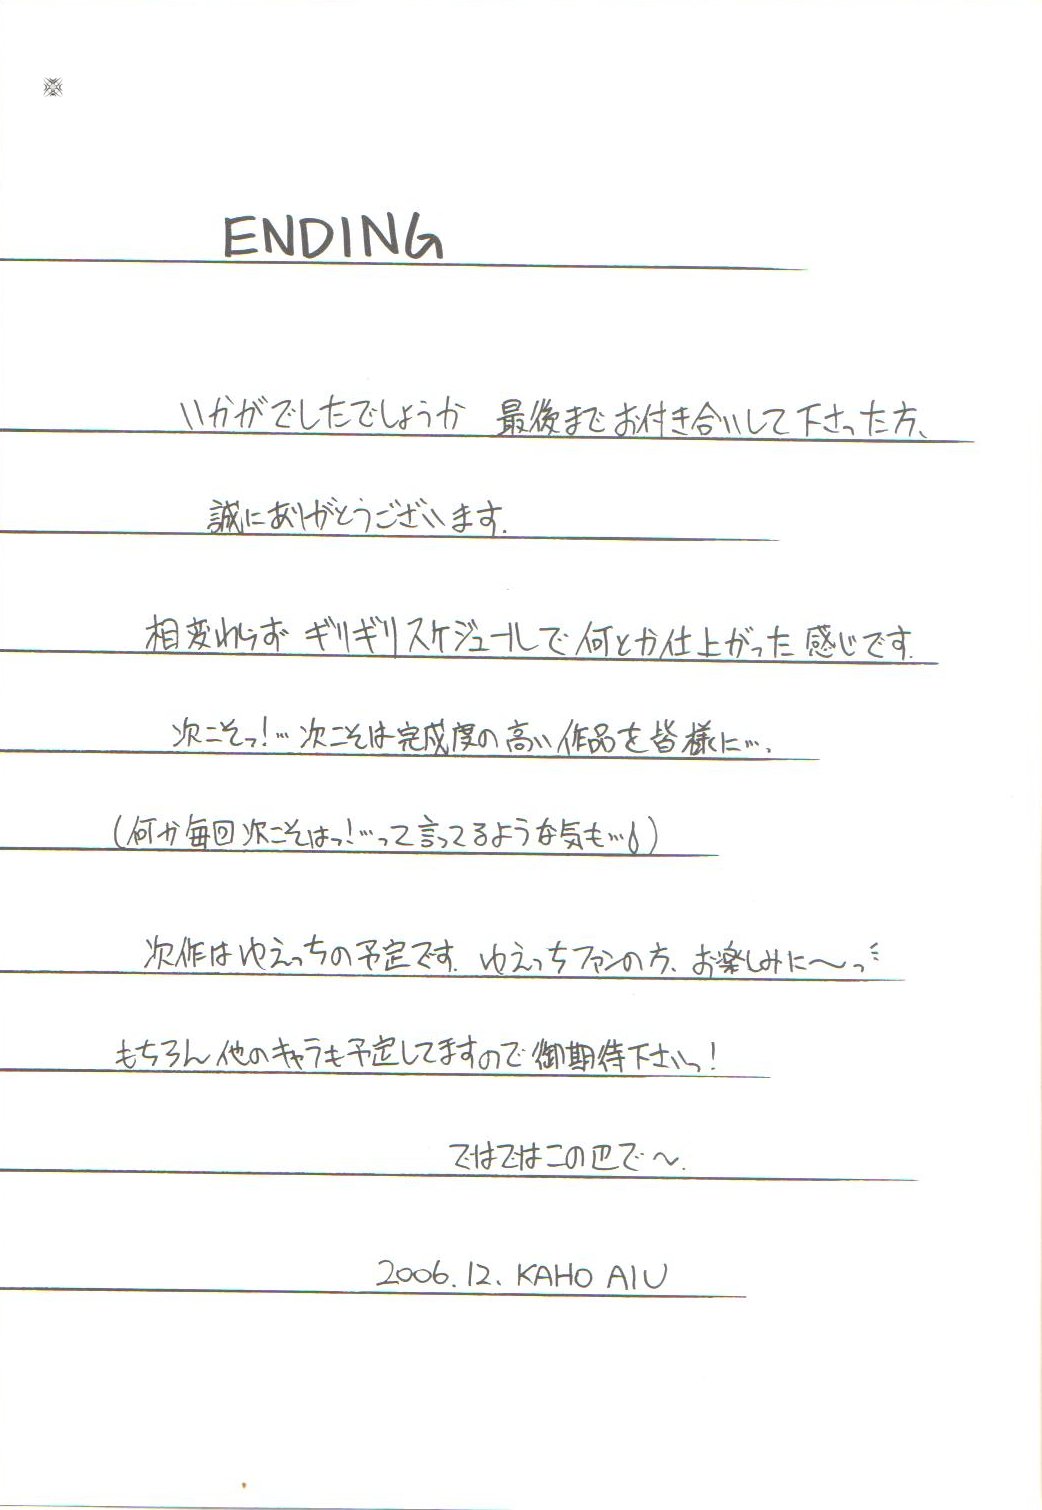 ENDING
いかがでしたでしょうか 最後までお付き合いして下さった方、
誠にありがとうございます.
相変わらず ギリギリスケジュールで何とか仕上がった感じです.
次こそっ!…次こそは完成度の高い作品を皆様に….
(何か毎回次こそはっ!…って言ってるような気も…)
次作はゆえっちの予定です. ゆえっちファンの方、お楽しみに〜っ
もちろん他のキャラも予定してますので御期待下さいっ!
ではではこの辺で〜.
2006.12. KAHO AIU